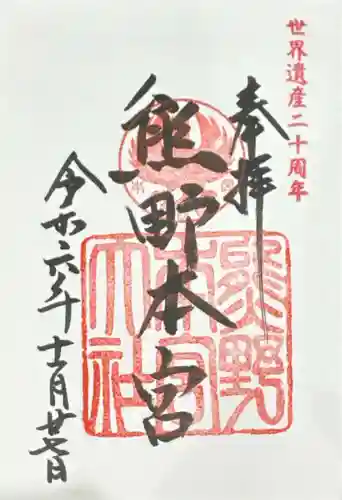 世界遺産二十周年
奉拝
熊野本宮
熊野本宮大社
令和六年十一月廿七日